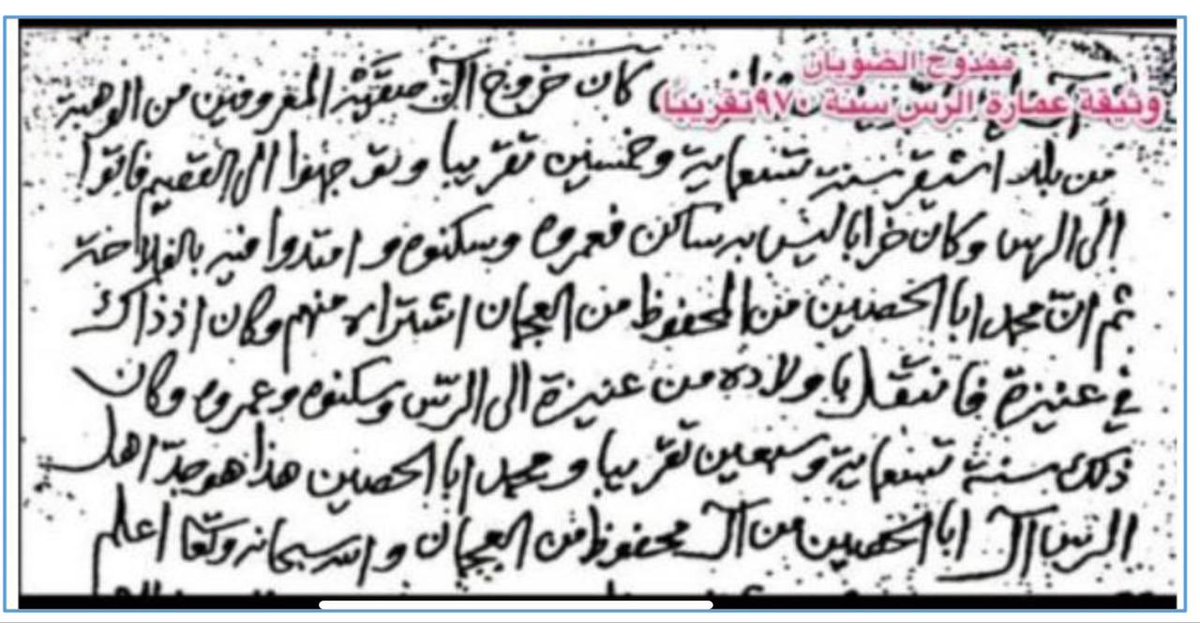 ممدوح الضويان
وثيقة عمارة الرس سنة ٩٧٠ تقريباً
كان خروج آل صقيه المعروفين من الوهبة
من بلد اشيقر سنة تسعماية وخمسين تقريبا وتوجهوا الى القصيم فاتوا
الى الرس وكان خرابا ليس به ساكن فعمروه وسكنوه وامتدوا فيه بالفلاحة
ثم انّ محمد ابا الحصين من المحفوظ من العجمان اشتراه منهم وكان اذ ذاك
في عنيزة فانتقل باولاده من عنيزة الى الرسّ وسكنوه وعمروه وكان
ذلك سنة تسعماية وسبعين تقريبا ومحمد ابا الحصين هذا هو جدّ اهل
الرس آل ابا الحصين من آل محفوظ من العجمان والله سبحانه وتعا اعلم